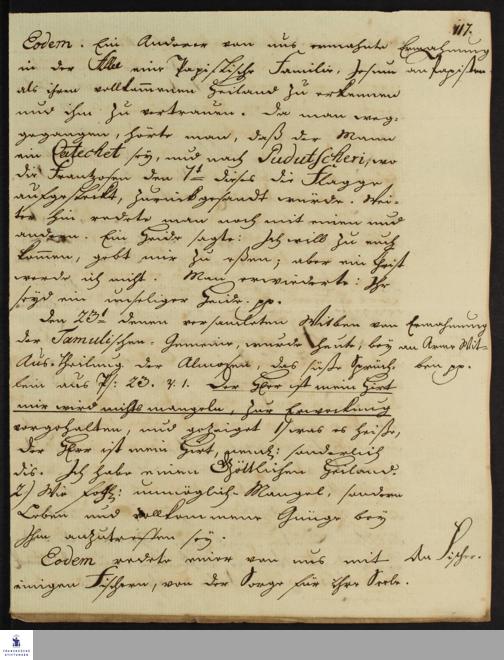 117.
Eodem. Ein Anderer von uns ermahnte Ermahnung
in der Allee eine Papistische Familie, Jesum an Papisten
als ihren vollkom̅enen Heiland zu erkennen
und ihm zu vertrauen. Da man weg-
gegangen, hörte man, daß der Mann
ein Catechet sey, und nach Pudutscheri, wo
die Frantzosen den 7t dieses die Flagge
aufgesteckt, zurückgesandt würde. Wei-
ter hin redete man noch mit einem und
andern. Ein Heide sagte: Ich will zu euch
kom̅en, gebt mir zu eßen; aber ein Christ
werde ich nicht. Man erwiederte: Ihr
seyd ein unseliger Heide. pp.
Den 23t denen versamleten Witben von Ermahnung
der Tamulischen-Gemeine, wurde heute, bey an Arme Wit-
Aus-theilung der Almosen das süße Sprüch- ben pp.
lein aus Ps: 23. v. 1. Der Herr ist mein Hirt
mir wird nichts mangeln, zur Erweckung
vorgehalten, und gezeiget 1) was es heiße,
der Herr ist mein Hirt, nemlich: sonderlich
dis. Ich habe einen Göttlichen Heiland.
2) Wie folglich: unmöglich Mangel, sondern
Leben und vollkommene Gnüge bey
Ihm anzutreffen sey.
Eodem redete einer von uns mit An Fischer.
einigen Fischern, von der Sorge für ihre Seele.
FRANCKESCHE
STIFTUNGEN